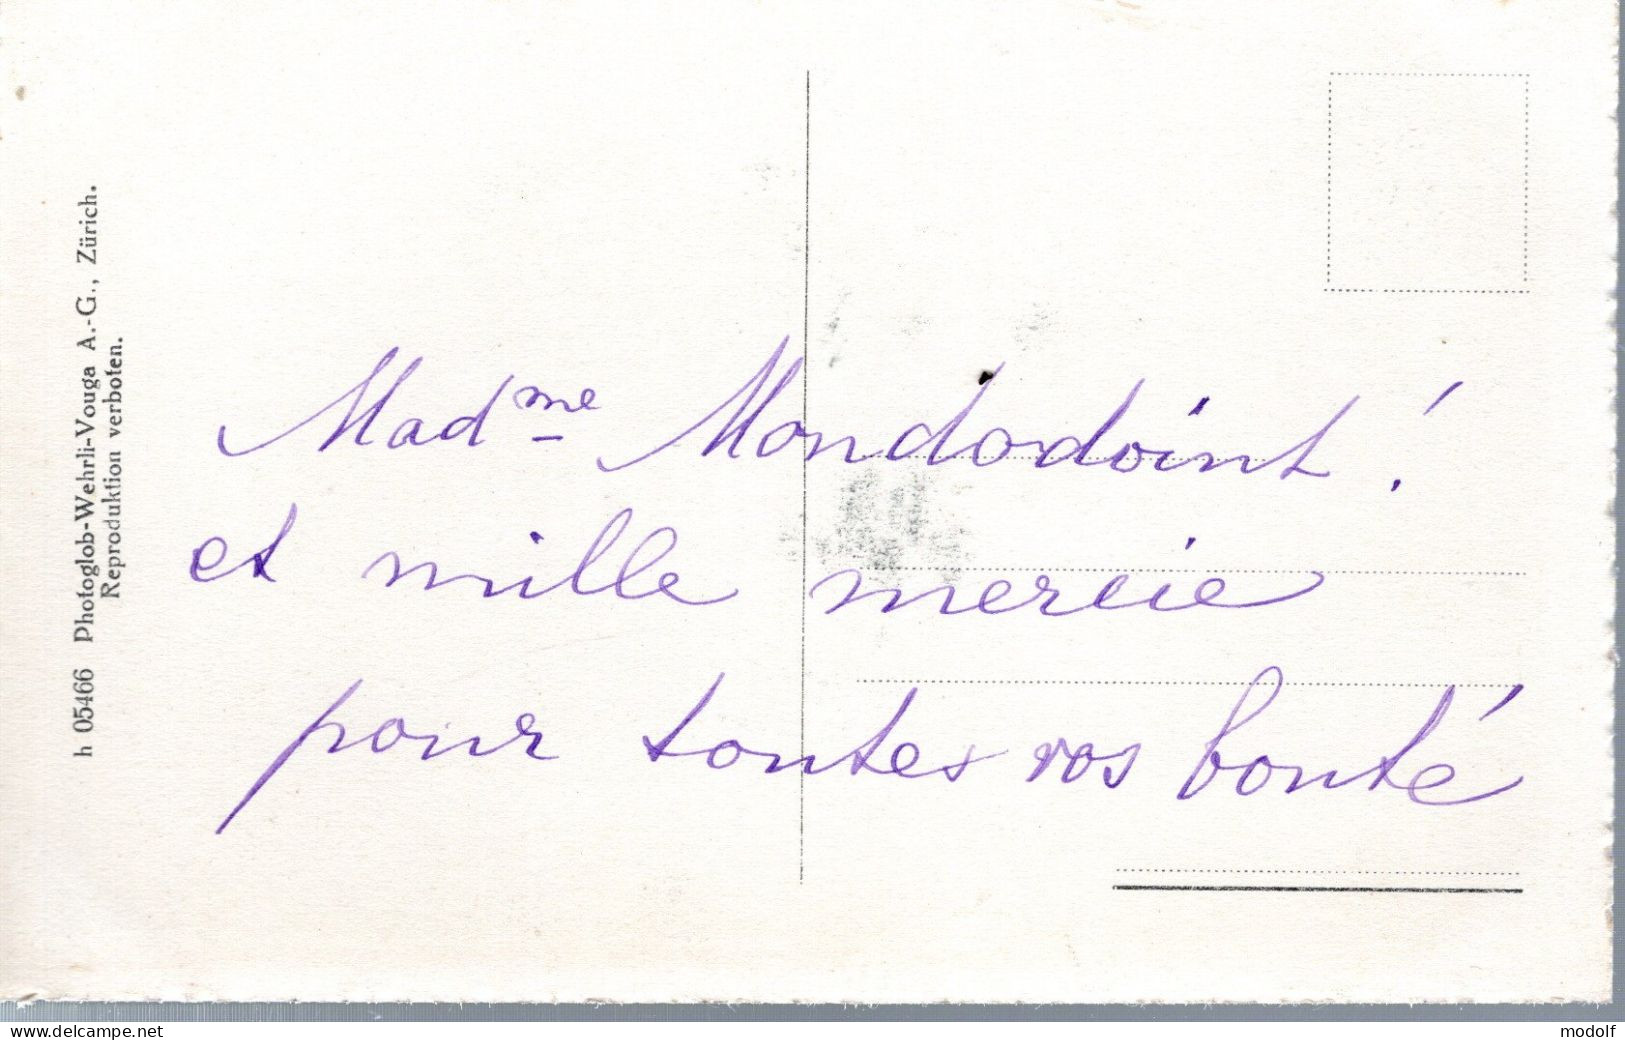 h 05466 Photoglob-Wehrli-Vouga A.-G., Zürich.
Reproduktion verboten.
Mad me Mondodoint !
et mille mercie
pour toutes vos bonté
www.delcampe.net
modolf